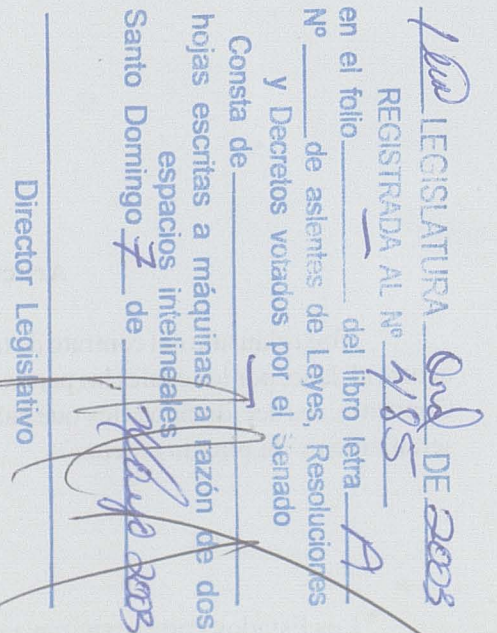 1era LEGISLATURA Ord DE 2003
REGISTRADA AL Nº 485
en el folio del libro letra A
Nº de asientes de Leyes, Resoluciones
y Decretos votados por el Senado
Consta de
hojas escritas a máquinas a razón de dos
espacios intelineales
Santo Domingo 7 de Mayo 2003
Director Legislativo